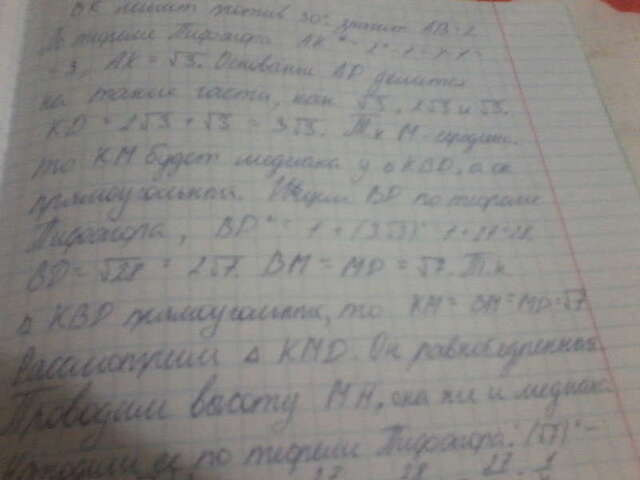 BK лежит против 30°, значит AB=2.
По теореме Пифагора AK² = 2² - 1² = 4-1=
=3, AK = √3. Основание AD делится
на такие части, как √3, 2√3 и √3.
KD = 2√3 + √3 = 3√3. Т.к M-середина.
то KM будет медиана у △KBD, а он
прямоугольный. Ищем BD по теореме
Пифагора, BD² = 1 + (3√3)² = 1+27=28
BD = √28 = 2√7. BM = MD = √7. Т.к
△ KBD прямоугольный, то KM = BM = MD=√7
Рассмотрим △ KMD. Он равнобедренный
Проводим высоту MH, она же и медиана
Находим ее по теореме Пифагора: (√7)² -